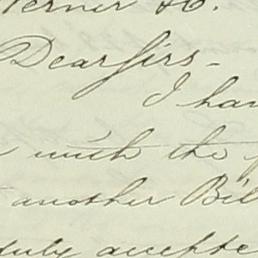 Dear Sirs -
I hav
with the
another Bil
duly accepte